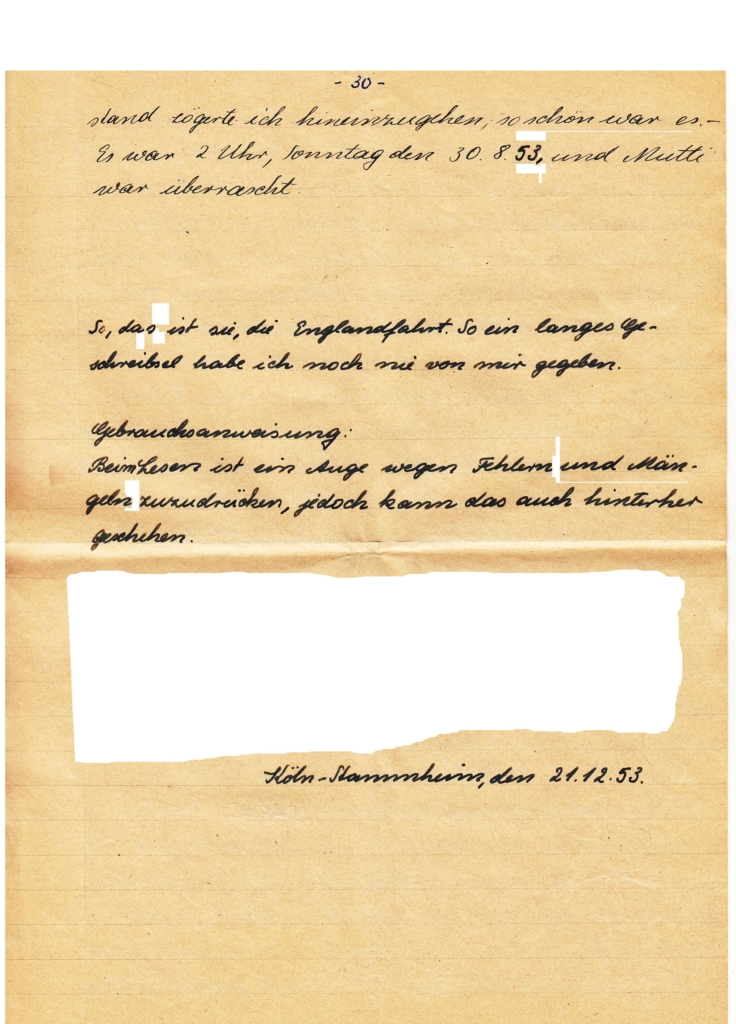 - 30 -
stand zögerte ich hineinzugehen, so schön war es.–
Es war 2 Uhr, Sonntag den 30. 8. 53, und Mutti
war überrascht.
So, das ist sie, die Englandfahrt. So ein langes Ge-
schreibsel habe ich noch nie von mir gegeben.
Gebrauchsanweisung:
Beim Lesen ist ein Auge wegen Fehlern und Män-
geln zuzudrücken, jedoch kann das auch hinterher
geschehen.
Köln-Stammheim, den 21.12.53.